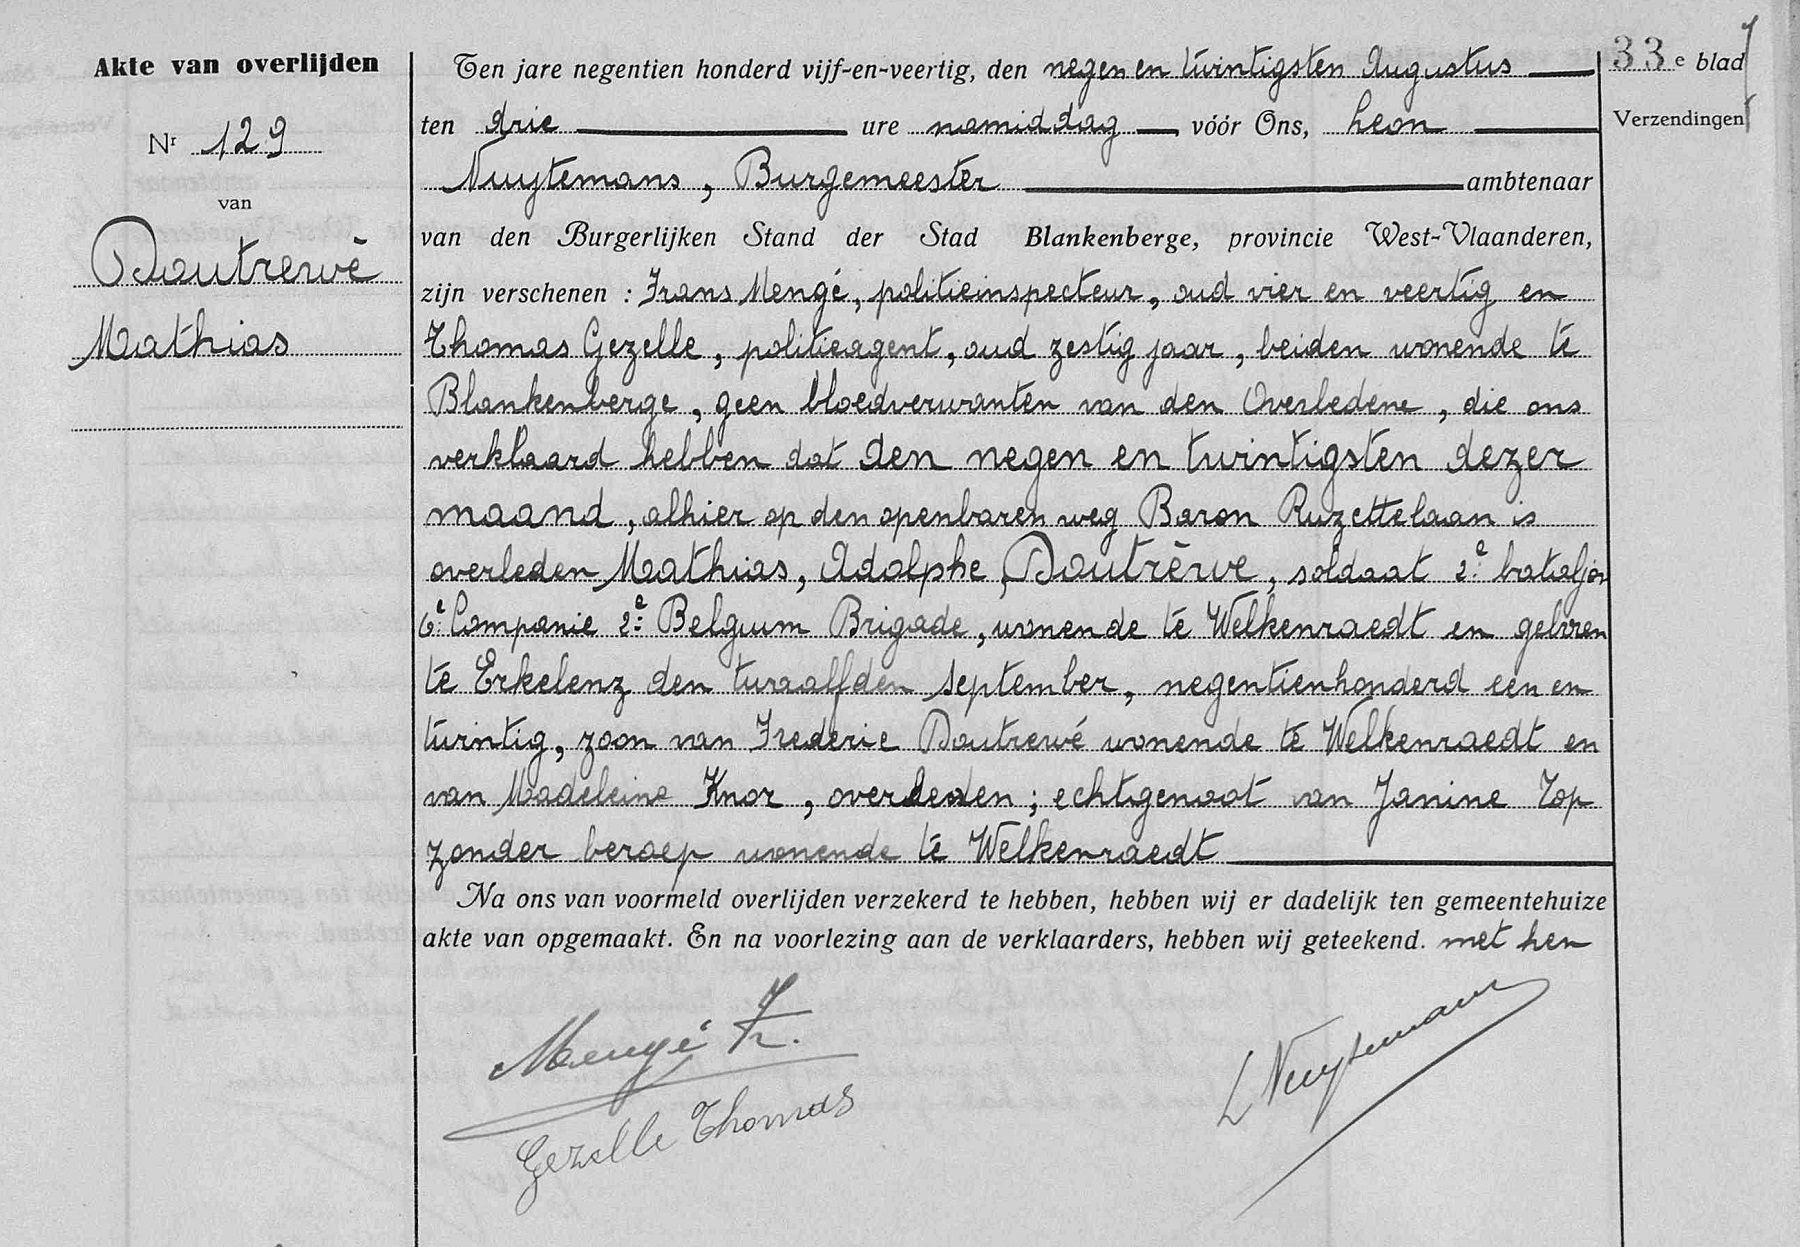 Akte van overlijden
Nr 129
van
Doutrewé
Mathias
Ten jare negentien honderd vijf-en-veertig, den negen en twintigsten Augustus
ten drie ure namiddag vóór Ons, Leon
Nuytemans, Burgemeester ambtenaar
van den Burgerlijken Stand der Stad Blankenberge, provincie West-Vlaanderen,
zijn verschenen : Frans Mengé, politieinspecteur, oud vier en veertig en
Thomas Gezelle, politieagent, oud zestig jaar, beiden wonende te
Blankenberge, geen bloedverwanten van den Overledene, die ons
verklaard hebben dat den negen en twintigsten dezer
maand, alhier op den openbaren weg Baron Ruzettelaan is
overleden Mathias, Adolphe, Doutrèwe, soldaat 2e bataljon
6e Companie 2e Belgium Brigade, wonende te Welkenraedt en geboren
te Erkelenz den twaalfden september, negentienhonderd een en
twintig, zoon van Frederic Doutrewé wonende te Welkenraedt en
van Madeleine Knor, overleden; echtgenoot van Janine Top
zonder beroep wonende te Welkenraedt
Na ons van voormeld overlijden verzekerd te hebben, hebben wij er dadelijk ten gemeentehuize
akte van opgemaakt. En na voorlezing aan de verklaarders, hebben wij geteekend. met hen
Mengé Fr.
Gezelle Thomas
L Nuytemans
33e blad
Verzendingen